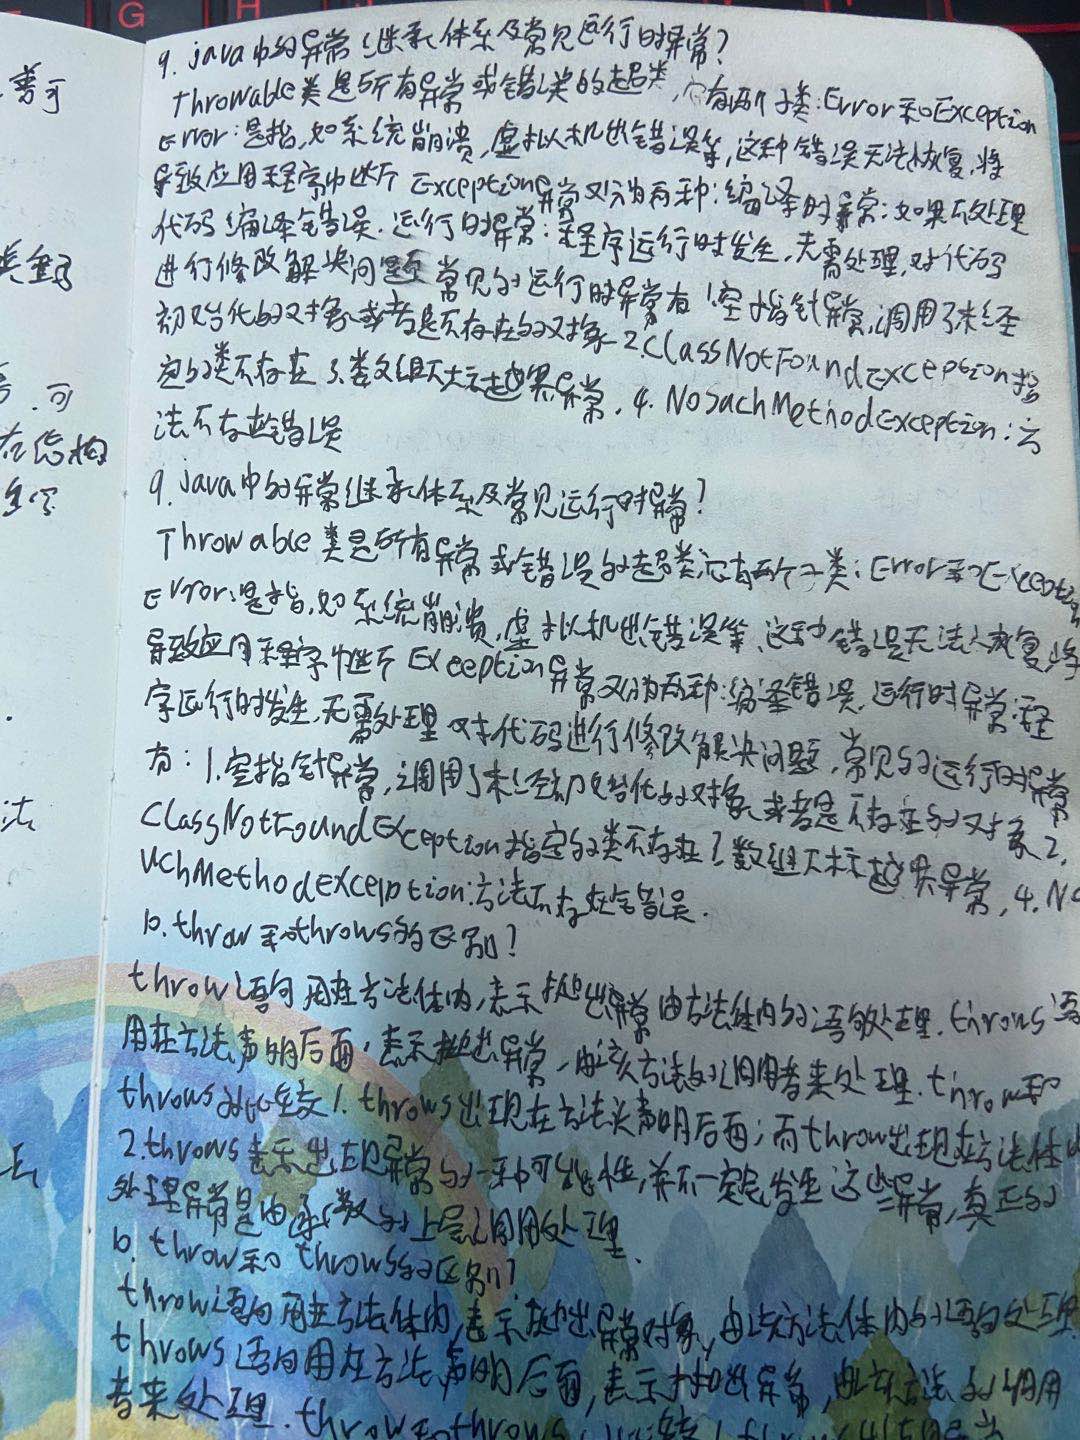 善可
类重写
可
在结构
法
9. java中的异常继承体系及常见运行时异常?
Throwable类是所有异常或错误的超类,它有两个子类:Error和Exception
Error:是指,如系统崩溃,虚拟机出错误等,这种错误无法恢复,将
导致应用程序中断 Exception异常又分为两种:编译时异常:如果不处理
代码编译错误.运行时异常:程序运行时发生,无需处理,对代码
进行修改解决问题 常见的运行时异常有1空指针异常,调用了未经
初始化的对象或者是不存在的对象 2.ClassNotFoundException指
定的类不存在 3.数组下标越界异常. 4. NoSuchMethodException:方
法不存在错误
9. java中的异常继承体系及常见运行时异常?
Throwable类是所有异常或错误的超类,它有两个子类:Error和Exception
Error:是指,如系统崩溃,虚拟机出错误等,这种错误无法恢复,将
导致应用程序中断 Exception异常又分为两种:编译错误.运行时异常:程
序运行时发生,无需处理 对代码进行修改解决问题,常见的运行时异常
有:1.空指针异常,调用了未经初始化的对象或者是不存在的对象2.
ClassNotFoundException指定的类不存在 3数组下标越界异常,4.No
uchMethodexception:方法不存在错误.
10.throw和throws的区别?
throw语句用在方法体内,表示抛出异常由方法体内的语句处理.throws语
用在方法声明后面,表示抛出异常,由该方法的调用者来处理.throw和
throws的比较1.throws出现在方法头声明后面;而throw出现在方法体
2.throws表示出现异常的一种可能性,并不一定发生这些异常,真正的
处理异常是由函数的上层调用处理.
10. throw和throws的区别?
throw语句用在方法体内,表示抛出异常对象,由该方法体内的语句处理
throws语句用在方法声明后面,表示抛出异常,由该方法的调用
者来处理.throw和throws的比较1.throws出现